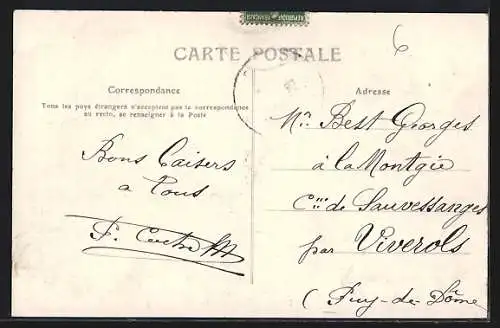 CARTE POSTALE
6
Correspondance
Tous les pays étrangers n'acceptent pas la correspondance
au recto, se renseigner à la Poste
Bons Baisers
a Tous
Adresse
Mr Best Georges
à la Montgie
Cne de Sauvessanges
par Viverols
(Puy-de-Dôme